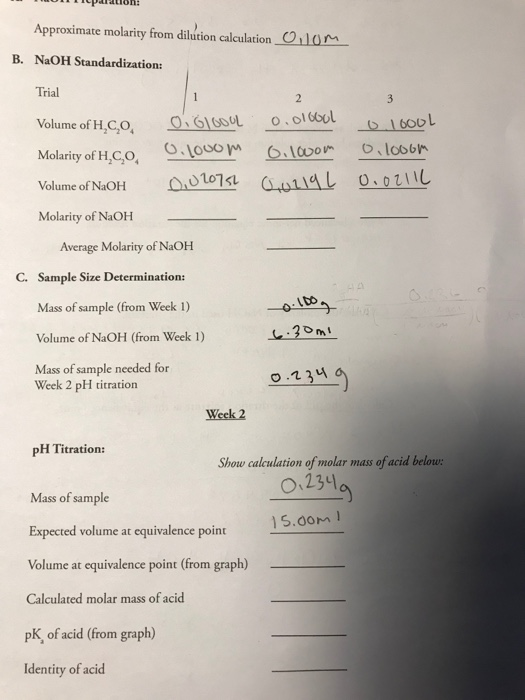 Approximate molarity from dilution calculation 0.10m
B. NaOH Standardization:
Trial 1 2 3
Volume of H₂C₂O₄ 0.01000L 0.01000L 0.1000L
Molarity of H₂C₂O₄ 0.1000m 0.1000m 0.1000m
Volume of NaOH 0.02075L 0.0219L 0.0211L
Molarity of NaOH
Average Molarity of NaOH
C. Sample Size Determination:
Mass of sample (from Week 1) 0.100g
Volume of NaOH (from Week 1) 6.30ml
Mass of sample needed for
Week 2 pH titration 0.234g
Week 2
pH Titration:
Show calculation of molar mass of acid below:
Mass of sample 0.234g
Expected volume at equivalence point 15.00ml
Volume at equivalence point (from graph)
Calculated molar mass of acid
pKₐ of acid (from graph)
Identity of acid